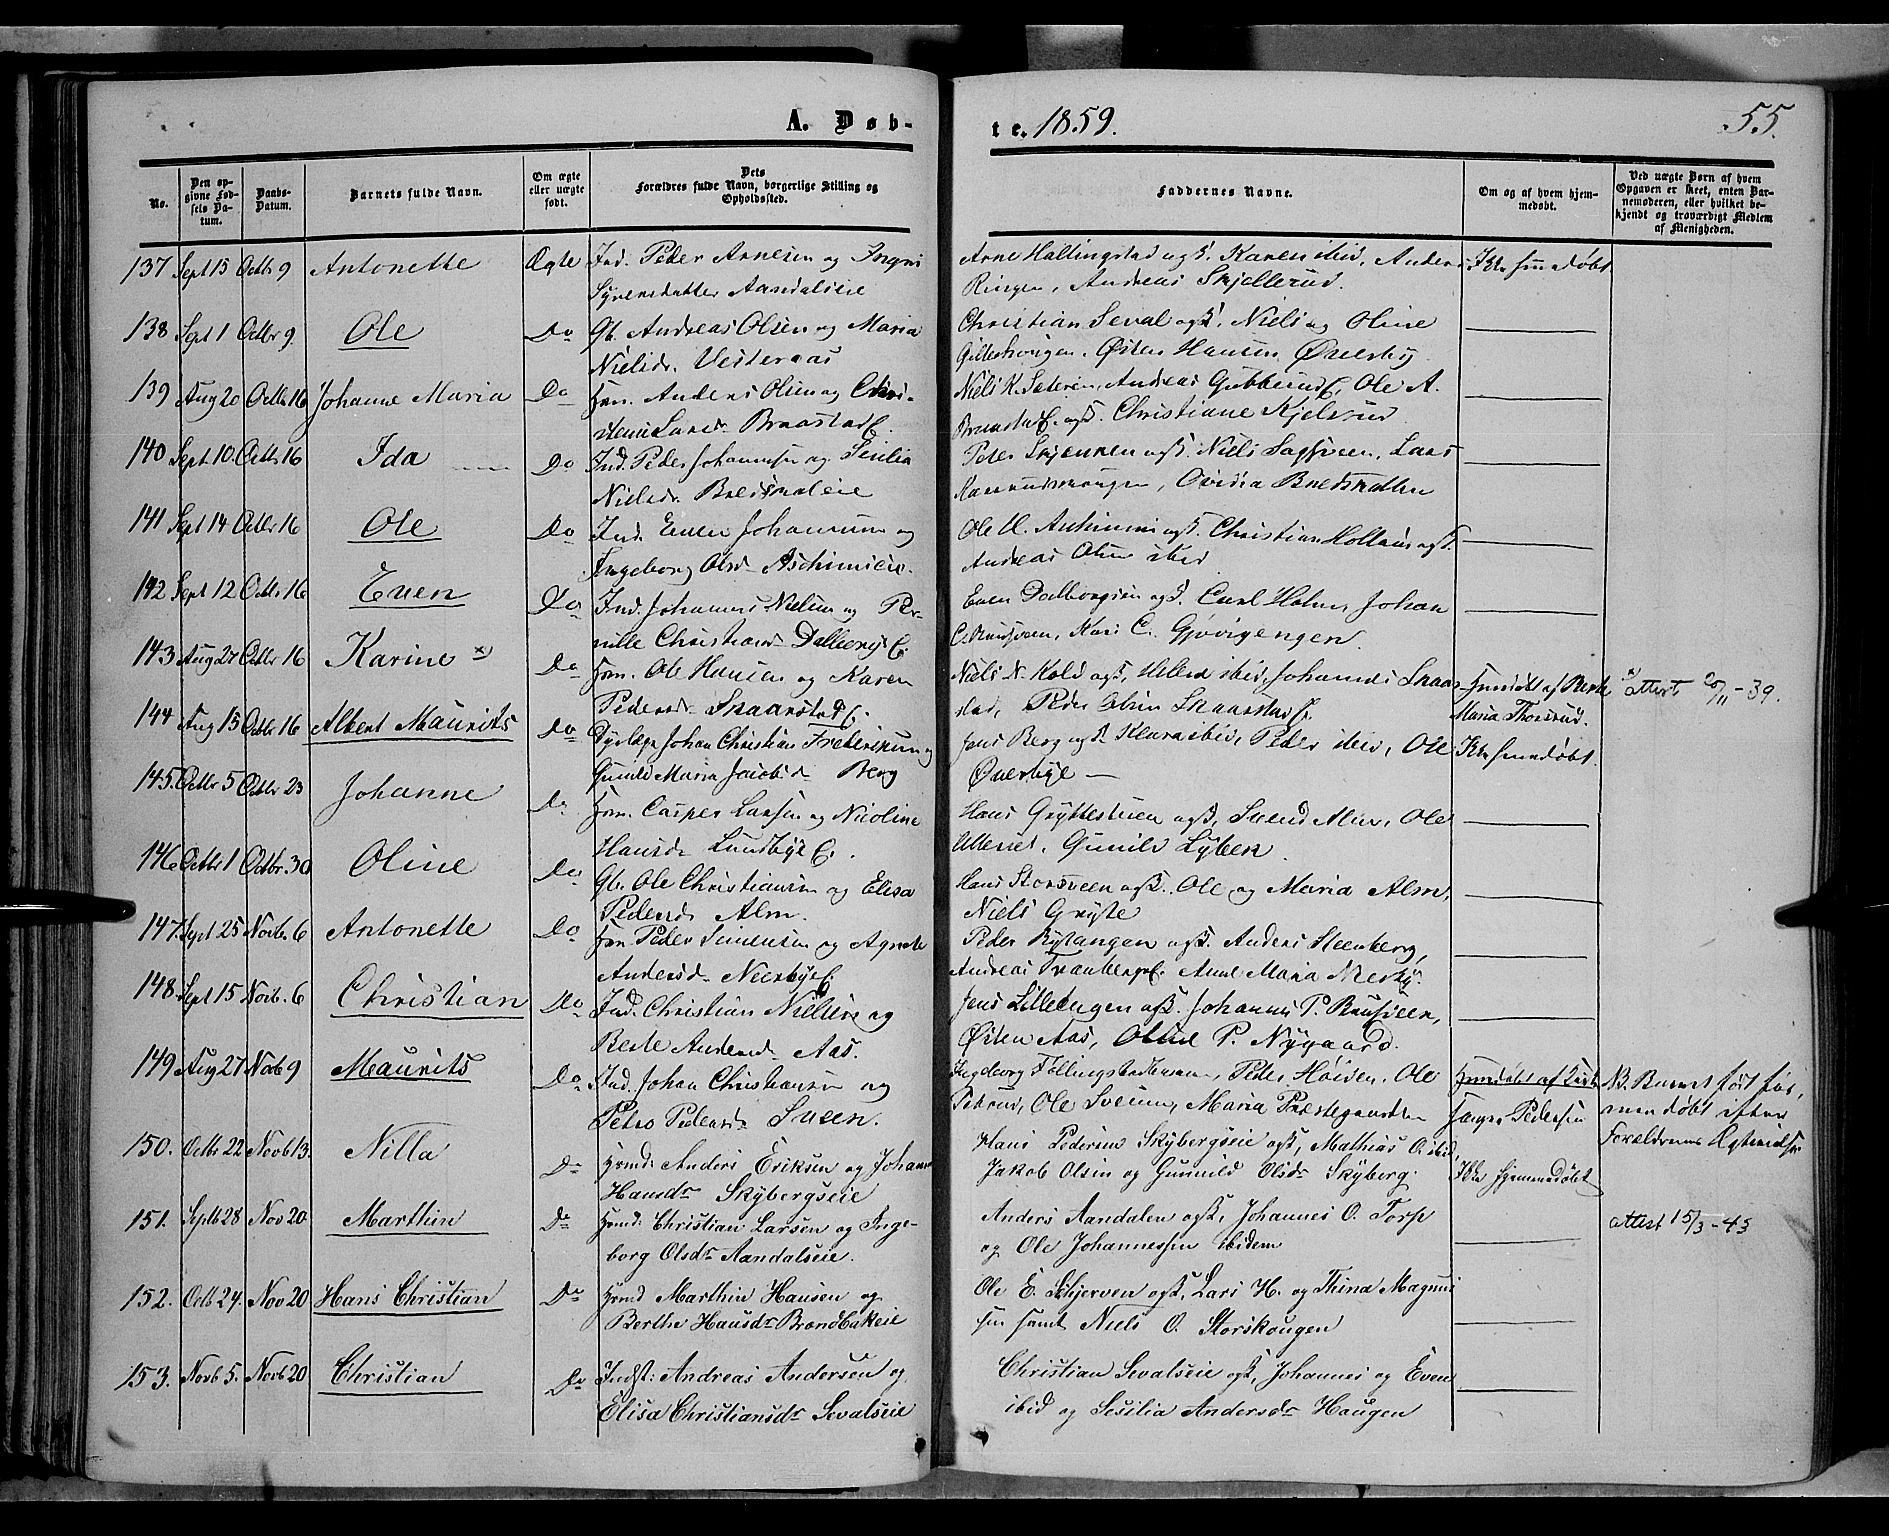 A. Døb-
te. 1859.
55.
No.
Den op-
givne Fød-
sels Da-
tum.
Daabs-
Datum.
Barnets fulde Navn.
Om ægte
eller uægte
født.
Dets
Forældres fulde Navn, borgerlige Stilling og
Opholdssted.
Faddernes Navne.
Om og af hvem hjem-
medøbt.
Ved uægte Børn af hvem
Opgaven er skeet, enten Bar-
nemoderen, eller hvilket be-
kjendt og troværdigt Medlem
af Menigheden.
137 Sept 15 Octbr 9 Antonette Ægte Ind. Peder Arnesen og Ingri
Syversdatter Aandalseie
Arne Hallingstad ogs. Karen ibid, Anders
Ringen, Andreas Skjellerud.
Ikke hmedøbt
138 Sept 1 Octbr 9 Ole Do Gb. Andreas Olsen og Maria
Nielsdr. Vesteraas
Christian Seval ogs. Niels og Oline
Østen Hansen Øverby
139 Aug 20 Octbr 16 Johanne Maria Do Hm. Anders Olsen og Chri-
Larsdr. Braastad E.
Niels K. Sateren, Andreas Ole A.
ogs. Christiane Kjelsrud
140 Sept. 10 Octbr 16 Ida Do Ind. Peder Johannesen og Sesilia
Nielsdr. Bredsmaleie
Peter Skjerven ogs. Niels Sagsveen, Lars
141 Sept 14 Octbr 16 Ole Do Ind. Even Johannesen og
Ingeborg Olsdr. Aschimseie.
Ole H. ogs. Christian ogs.
Andreas Olsen ibid
142 Sept 12 Octbr 16 Even Do Ind. Johannes Nielsen og Per-
nille Christiansdr. Dalborg E.
Even Dalborgseie ogs. Carl Holm, Johan
Kari C. Gjøvigengen
143 Aug 27 Octbr 16 Karine x) Do Hm. Ole Hansen og Karen
Pedersdr. Skaarstad E.
Niels N. Kold ogs., Helene ibid, Johannes Skaar-
stad, Peder Olsen Skaarstad E.
Hmdøbt af Berthe
Maria Thorsrud.
x) attest 20/11 - 39.
144 Aug 13 Octbr 16 Albert Maurits Do Dyrlæge Johan Christian Frederiksen og
Gunild Maria Jacobsdr. Berg
Jens Berg ogs. Klara ibid, Peder ibid, Ole
Øverbye —
Ikke hmedøbt.
145. Octbr 5 Octbr 23 Johanne Do Hm. Casper Larsen og Nicoline
Hansdr. Lundbye E.
Hans Gryttestuen ogs, Svend Alm, Ole
Gunild Lyben
146 Octbr 1 Octbr. 30 Oline Do Gb. Ole Christiansen og Elisa
Pedersdr. Alm.
Hans Storsveen ogs. Ole og Maria Alm,
Niels Gryte
147. Sept 25 Novb. 6 Antonette Do Hm. Peder Simensen og Agnete
Andersdr. Neerbye E.
Peder ogs. Anders Steenberg,
Andreas Tranberg E. Anne Maria Neerby.
148. Sept 15 Novb. 6 Christian Do Ind. Christian Nielsen og
Berte Andersdr. Aas.
Jens Lilleengen ogs. Johannes P. Bausveen,
Østen Aas, Oline P. Nygaard.
149 Aug 27 Novb 9 Maurits Do Ind. Johan Christiansen og
Petro Pedersdr. Sveen.
Ingeborg Peder Høien, Ole
Ole Sveum, Maria Præstegaarden
Hmdøbt af Kirke
sanger Pedersen
NB. Barnet først hjem-
mendøbt efter
Forældrenes Ægtevielse
150. Octbr 22 Novb 13. Nilla Do Hmd: Anders Eriksen og Johanne
Hansdr Skybergseie
Hans Pedersen Skybergseie ogs, Mathias O. ibid,
Jakob Olsen og Gunnild Olsdr Skyberg.
Ikke hjemmedøbt
151. Septb 28 Nov 20. Marthin Do Hmd: Christian Larsen og Inge-
borg Olsdr Aandalseie.
Anders Aandalen ogs, Johannes O. Torp
og Ole Johannessen ibidem
attest 15/3 - 43
152. Octb 24. Nov 20 Hans Christian Do Hmd Marthin Hansen og
Berthe Hansdr Brændbakeie
Ole E. Skjerven ogs, Lars H. og Thina Magnus-
sen samt Niels O. Storskougen
153. Novb 5. Novb 20 Christian Do Indst: Andreas Andersen og
Elisa Christiansdr Sevalseie
Christian Sevalseie ogs, Johannes og Even
ibid og Sesilia Andersdr Haugen